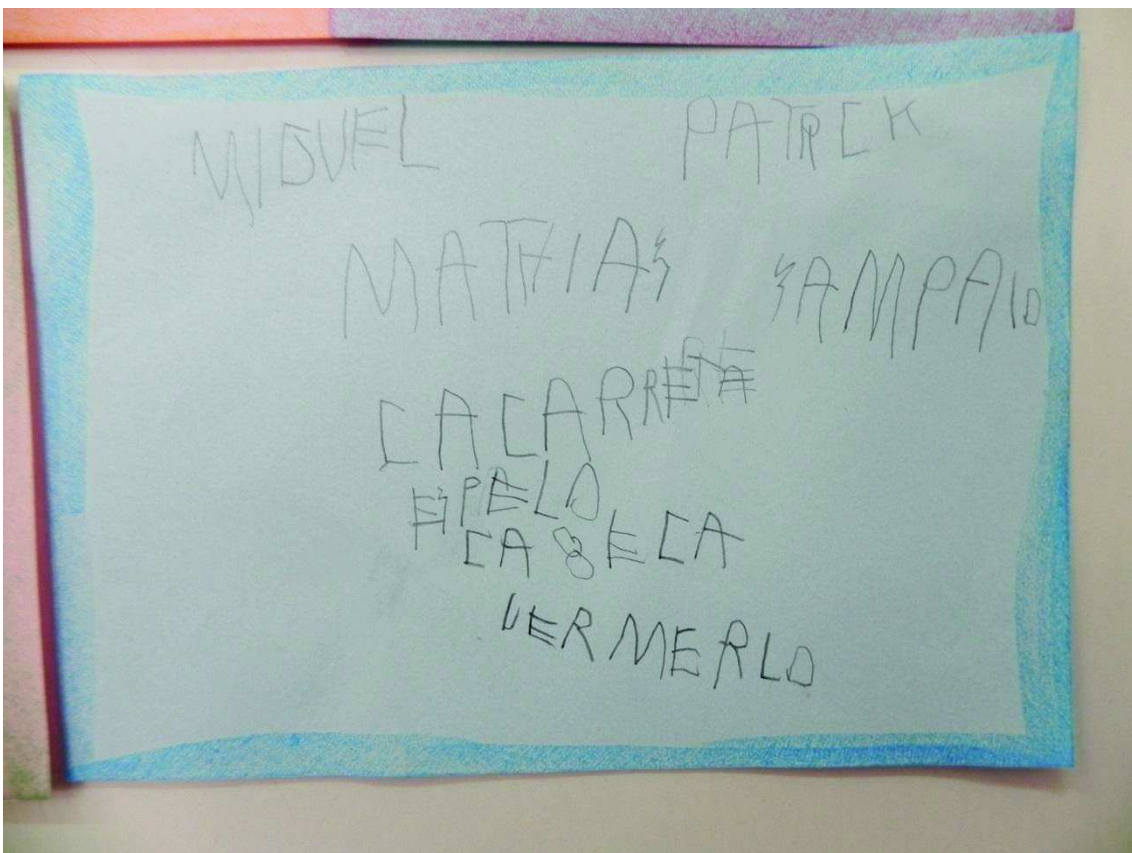 MIGUEL PATRCK
MATHIAS SAMPAIO
CACARREтE
ESPELO
CABECA
VERMERLO